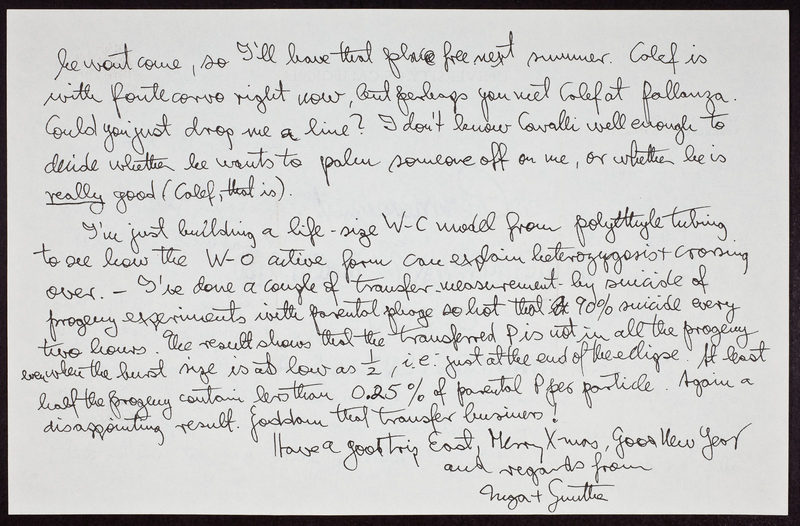 he wont come, so I'll have that place free next summer. Calef is
with Pontecorvo right now, but perhaps you met Calef at Pallanza.
Could you just drop me a line? I don't know Cavalli well enough to
decide whether he wants to palm someone off on me, or whether he is
really good (Calef, that is).
I'm just building a life-size W-C model from polythyle tubing
to see how the W-O active form can explain heterozygosis + crossing
over. – I've done a couple of transfer-measurement-by suicide of
progeny experiments with parental phage so hot that 90% suicide every
two hours. The result shows that the transferred P is not in all the progeny
even when the burst size is as low as 1/2, i.e. just at the end of the eclipse. At least
half the progeny contain less than 0.25% of parental P per particle. Again a
disappointing result. Goddam that transfer business!
Have a good trip East, Merry X-mas, Good New Year
and regards from
Inga + Gunther